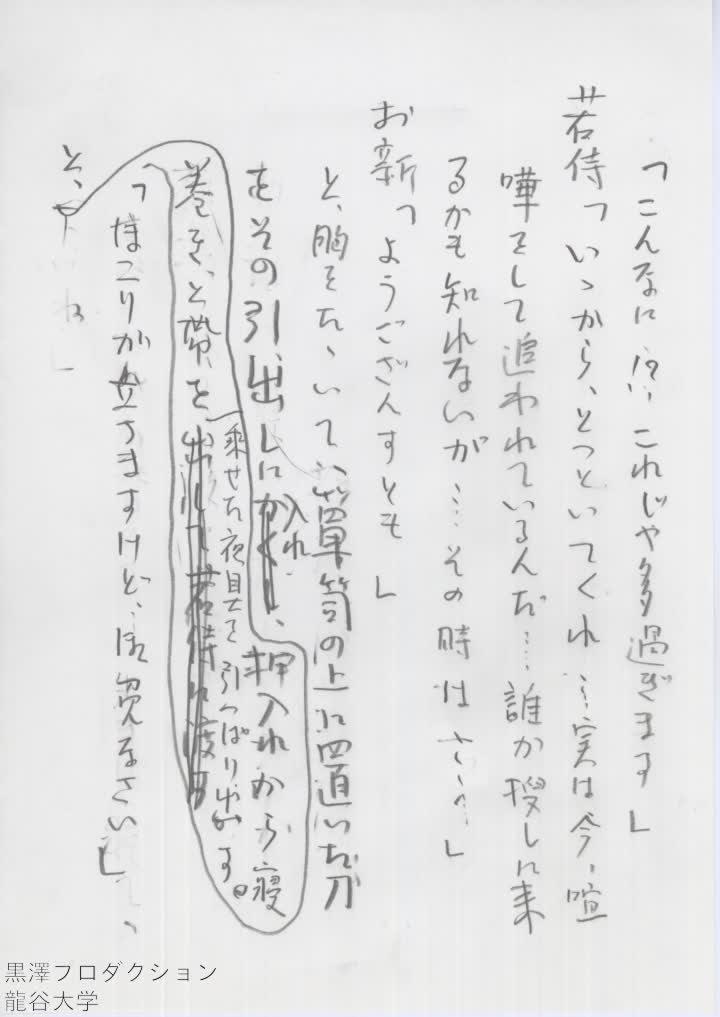 「こんなに⁉︎ これじゃ多過ぎます」
若侍「いゝから、とっといてくれ…実は今、喧
嘩をして追われているんだ…誰か捜しに来
るかも知れないが…その時はさ…」
お新「ようござんすとも」
と、胸をたゝいて、箪笥の上に置いた刀
をその引出しにかくし、入れ 押入れから寝
巻きと帯を出して若侍に渡す
乗せた夜具を引っぱり出す。
「ほこりが立ちますけど、御免なさい」、
と、
黒澤プロダクション
龍谷大学